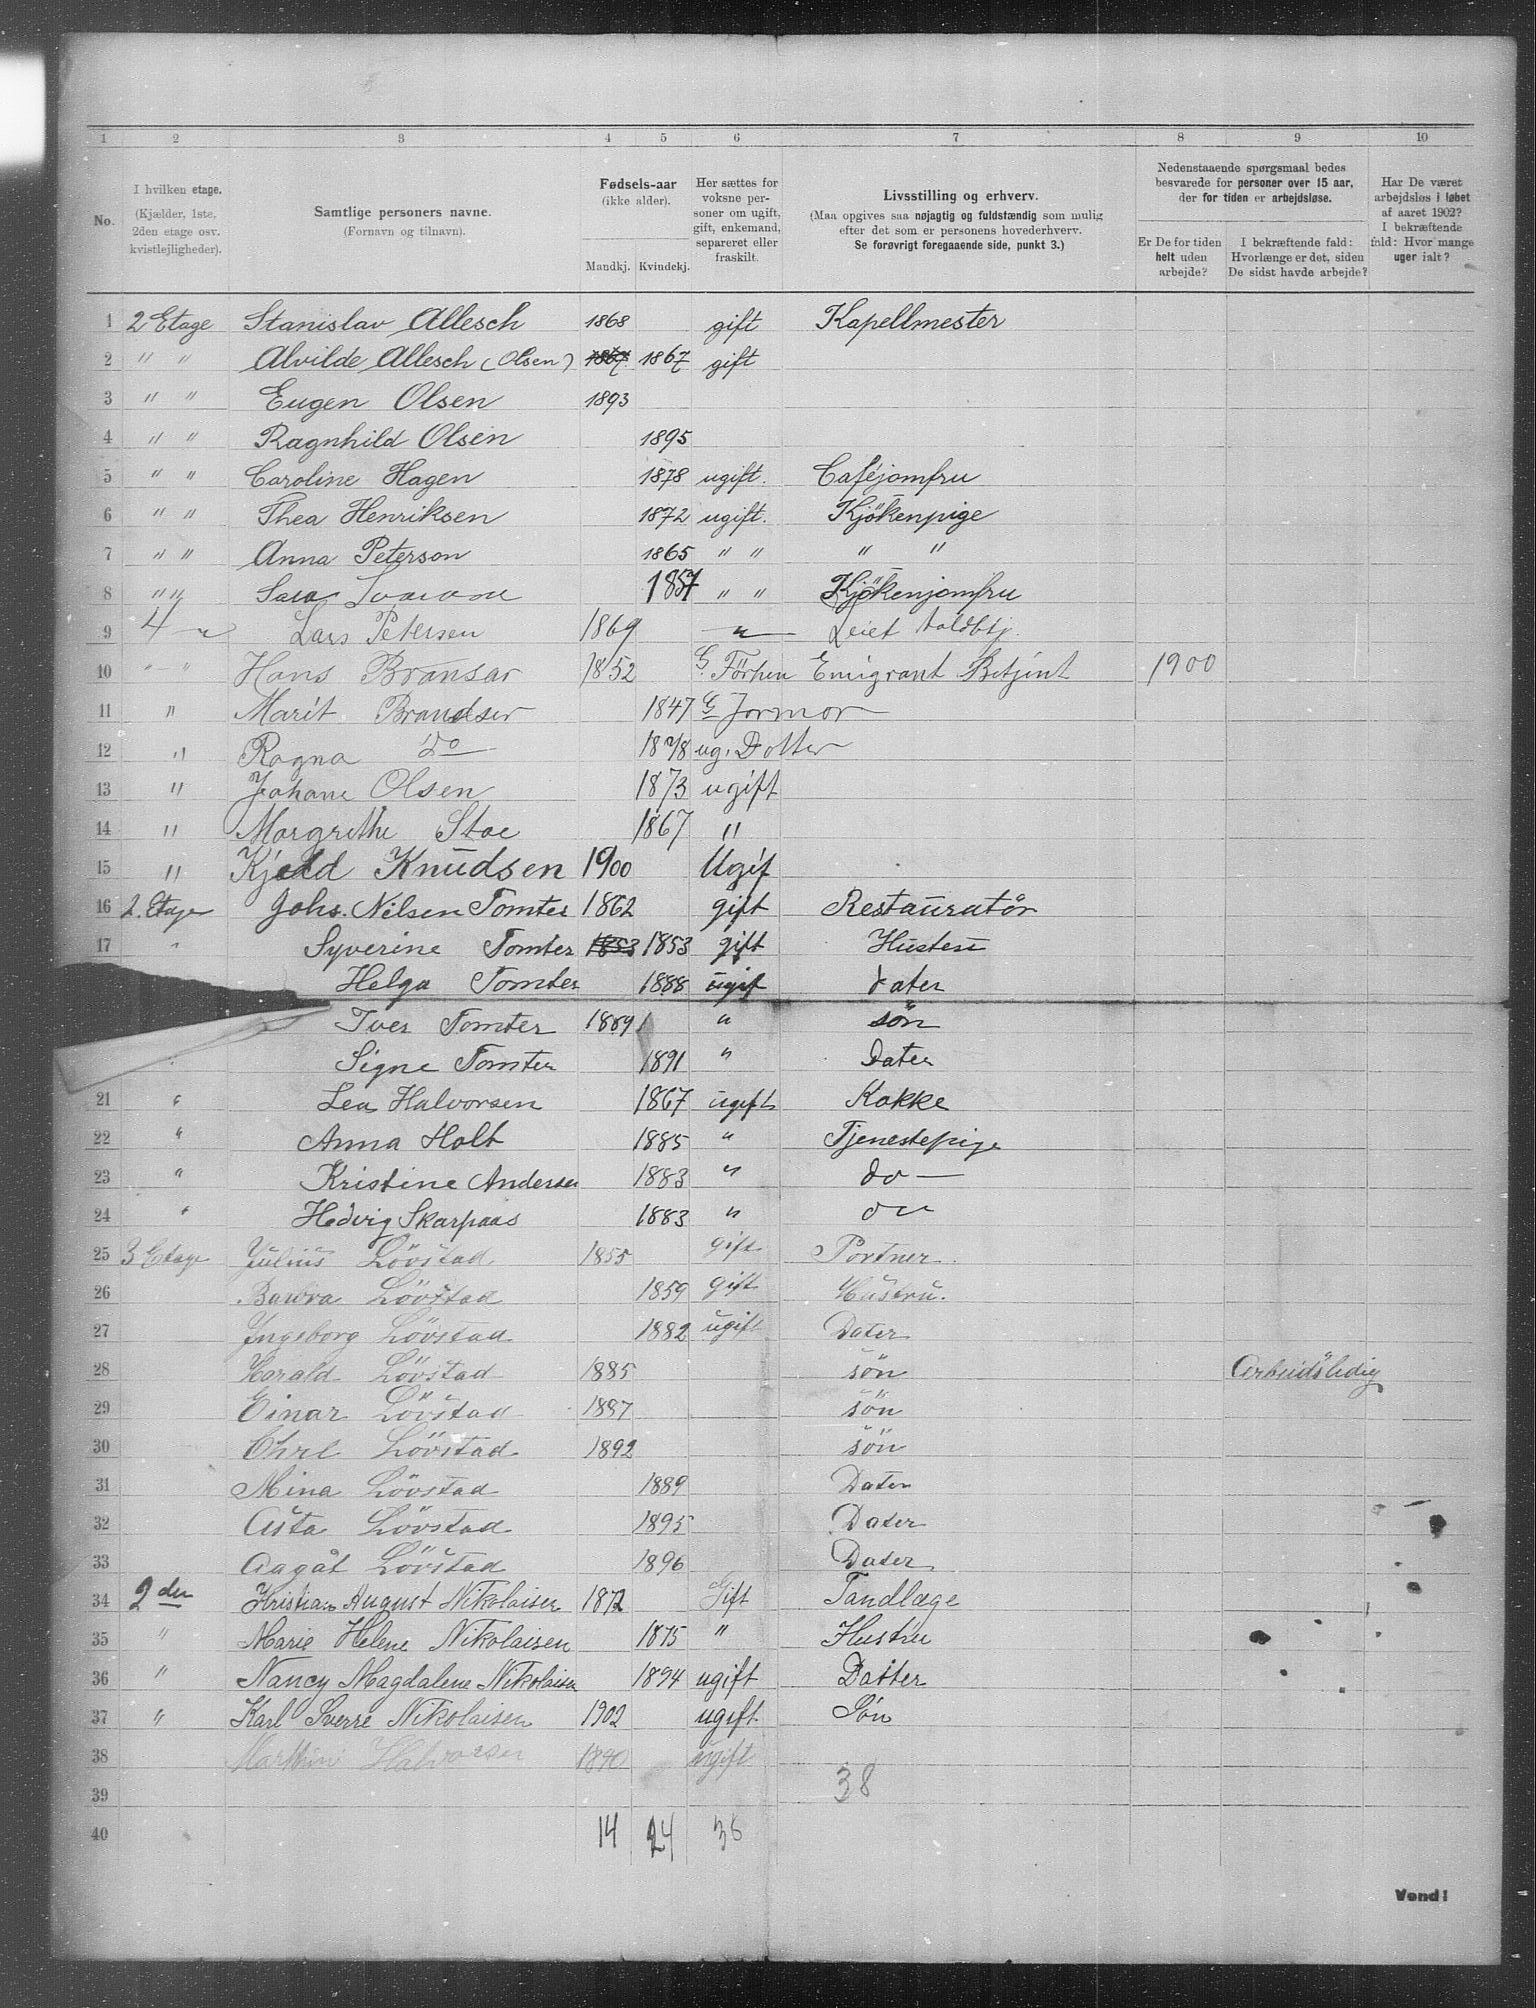 1 2 3 4 5 6 7 8 9 10
No.
I hvilken etage.
(Kjælder, 1ste, 2den etage osv. kvistlejligheder).
Samtlige personers navne.
(Fornavn og tilnavn).
Fødsels-aar
(ikke alder).
Mandkj. Kvindekj.
Her sættes for voksne personer om ugift, gift, enkemand, separeret eller fraskilt.
Livsstilling og erhverv.
(Maa opgives saa nøjagtig og fuldstændig som mulig efter det som er personens hovederhverv. Se forøvrigt foregaaende side, punkt 3.)
Nedenstaaende spørgsmaal bedes besvarede for personer over 15 aar, der for tiden er arbejdsløse.
Er De for tiden helt uden arbejde?
I bekræftende fald: Hvorlænge er det, siden De sidst havde arbejde?
Har De været arbejdsløs i løbet af aaret 1902? I bekræftende fald: Hvor mange uger ialt?
1 2 Etage Stanislav Allesch 1868 gift Kapellmester
2 " " Alvilde Allesch (Olsen) 1867 1867 gift
3 " " Eugen Olsen 1893
4 " " Ragnhild Olsen 1895
5 " " Caroline Hagen 1878 ugift. Caféjomfru
6 " " Thea Henriksen 1872 ugift. Kjökenpige
7 " " Anna Peterson 1865 " " " "
8 " " Sara 1857 " " Kjökenjomfru
9 4 Lars Petersen 1869 " Leiet
10 " Hans Bransar 1852 G Förhen Emigrant Betjent 1900
11 " Marit Brandser 1847 G Jormor
12 " Ragna do 1878 ug. Dotter
13 " Johane Olsen 1873 ugift
14 " Margrethe Stoe 1867 "
15 " Kjeld Knudsen 1900 Ugif
16 2. Etage Johs. Nilsen Tomter 1862 gift Restauratör
17 " Syverine Tomter 1853 1853 gift Hustru
Helga Tomter 1888 ugif dater
Iver Tomter 1889 " sön
Signe Tomter 1891 " Dater
21 " Lea Halvorsen 1867 ugift Kokke
22 " Anna Holt 1885 " Tjenestepige
23 " Kristine Andersen 1883 " do —
24 " Hedvig Skarpaas 1883 "
25 3 Etage Julius Lövstad 1855 gift Portner.
26 Lövstad 1859 gift Hustru.
27 Ingeborg Lövstad 1882 ugift Dater
28 Harald Lövstad 1885 sön Arbeidsledig
29 Einar Lövstad 1887 sön
30 Lövstad 1892 sön
31 Mina Lövstad 1889 Dater
32 Asta Lövstad 1895 Dater
33 Aagåt Lövstad 1896 Dater
34 2den Kristian August Nikolaisen 1872 Gift Tandlæge
35 " Marie Helene Nikolaisen 1875 " Hustru
36 " Nancy Magdalene Nikolaisen 1894 ugift Datter
37 " Karl Sverre Nikolaisen 1902 ugift Sön
38 Halvorsen 1890 ugift
39 38
40 14 24 38
Vend!